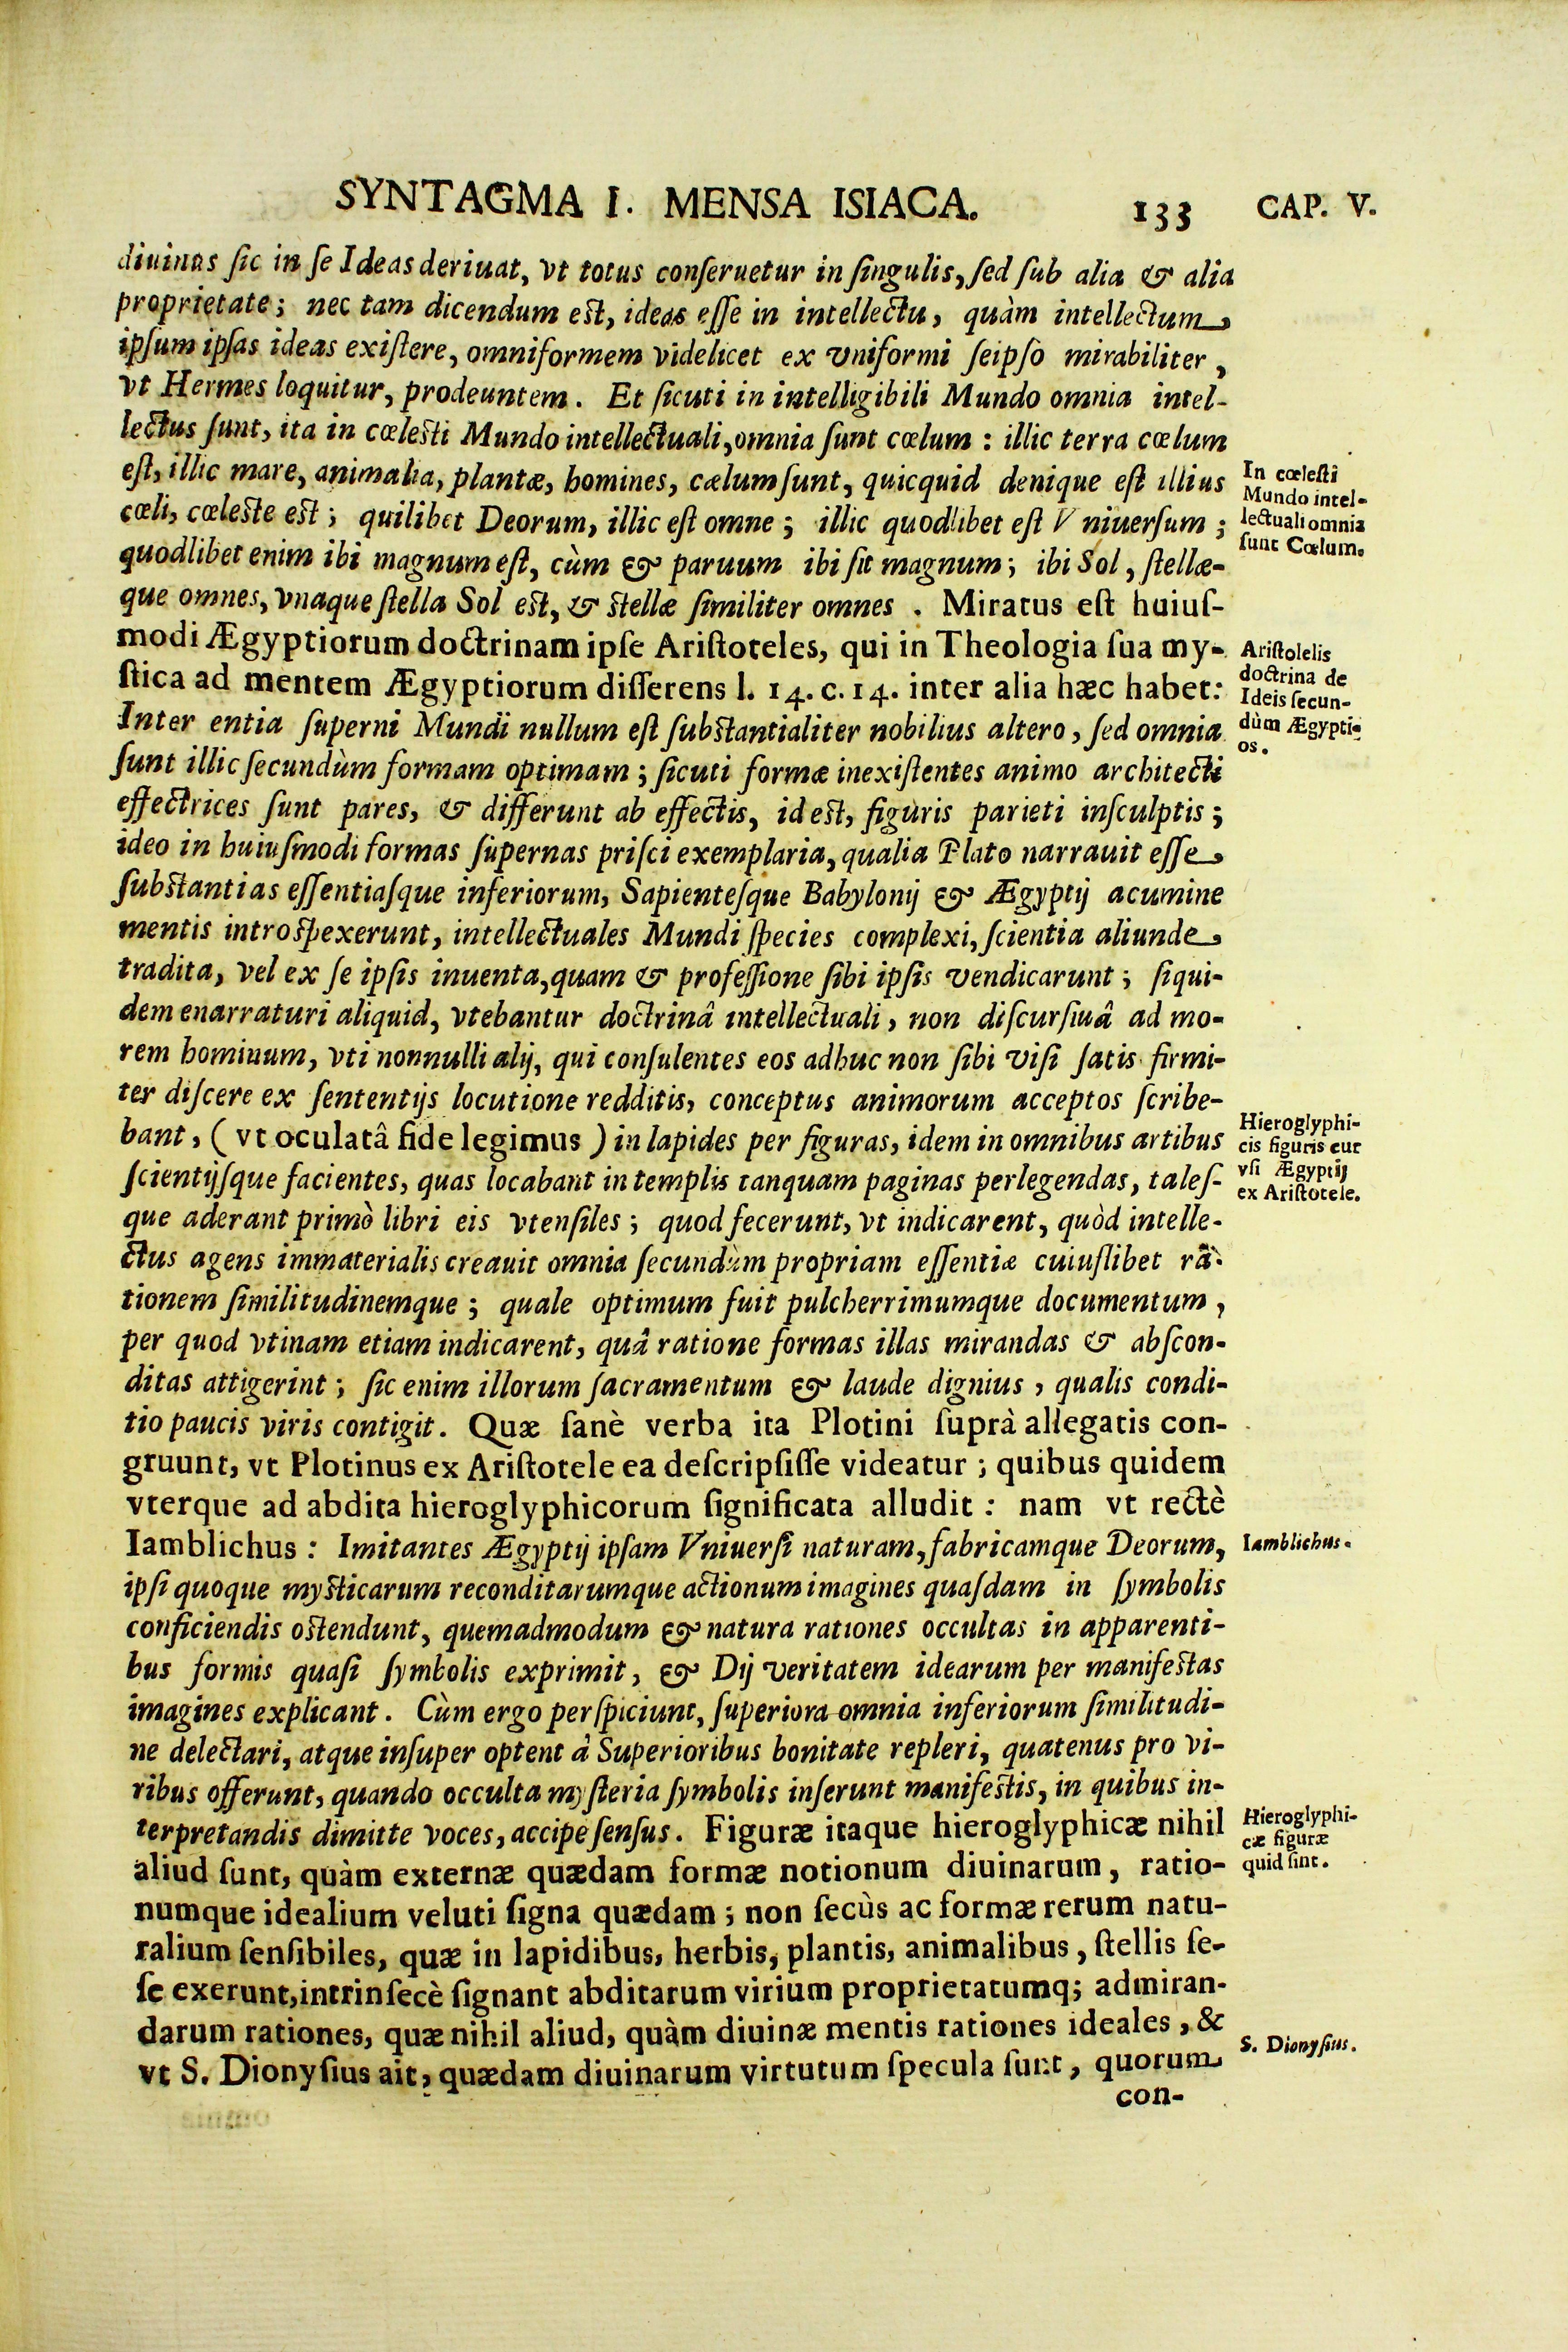 SYNTAGMA I. MENSA ISIACA. 133 CAP. V.
diuinas ſic in ſe Ideas deriuat, vt totus conſeruetur in ſingulis, ſed ſub alia & alia
proprietate; nec tam dicendum eſt, ideas eſſe in intellectu, quàm intellectum
ipſum ipſas ideas exiſtere, omniformem videlicet ex vniformi ſeipſo mirabiliter,
vt Hermes loquitur, prodeuntem. Et ſicuti in intelligibili Mundo omnia intel-
lectus ſunt, ita in cœleſti Mundo intellectuali, omnia ſunt cœlum: illic terra cœlum
eſt, illic mare, animalia, plantæ, homines, cælum ſunt, quicquid denique eſt illius
cœli, cœleſte eſt; quilibet Deorum, illic eſt omne; illic quodlibet eſt Vniuerſum;
quodlibet enim ibi magnum eſt, cùm & paruum ibi ſit magnum; ibi Sol, ſtellæ-
que omnes, vnaque ſtella Sol eſt, & ſtellæ ſimiliter omnes. Miratus eſt huiuſ-
modi Ægyptiorum doctrinam ipſe Ariſtoteles, qui in Theologia ſua my-
ſtica ad mentem Ægyptiorum diſſerens l. 14. c. 14. inter alia hæc habet:
Inter entia ſuperni Mundi nullum eſt ſubſtantialiter nobilius altero, ſed omnia
ſunt illic ſecundùm formam optimam; ſicuti formæ inexiſtentes animo architecti
effectrices ſunt pares, & differunt ab effectis, id eſt, figuris parieti inſculptis;
ideo in huiuſmodi formas ſupernas priſci exemplaria, qualia Plato narrauit eſſe
ſubſtantias eſſentiaſque inferiorum, Sapienteſque Babylonij & Ægyptij acumine
mentis introſpexerunt, intellectuales Mundi ſpecies complexi, ſcientia aliunde
tradita, vel ex ſe ipſis inuenta, quam & profeſſione ſibi ipſis vendicarunt; ſiqui-
dem enarraturi aliquid, vtebantur doctrinâ intellectuali, non diſcurſiuâ ad mo-
rem hominum, vti nonnulli alij, qui conſulentes eos adhuc non ſibi viſi ſatis firmi-
ter diſcere ex ſententijs locutione redditis, conceptus animorum acceptos ſcribe-
bant, (vt oculatâ fide legimus) in lapides per figuras, idem in omnibus artibus
ſcientijſque facientes, quas locabant in templis tanquam paginas perlegendas, taleſ-
que aderant primò libri eis vtenſiles; quod fecerunt, vt indicarent, quòd intelle-
ctus agens immaterialis creauit omnia ſecundùm propriam eſſentiæ cuiuſlibet ra-
tionem ſimilitudinemque; quale optimum fuit pulcherrimumque documentum,
per quod vtinam etiam indicarent, quâ ratione formas illas mirandas & abſcon-
ditas attigerint; ſic enim illorum ſacramentum & laude dignius, qualis condi-
tio paucis viris contigit. Quæ ſanè verba ita Plotini ſuprà allegatis con-
gruunt, vt Plotinus ex Ariſtotele ea deſcripſiſſe videatur; quibus quidem
vterque ad abdita hieroglyphicorum ſignificata alludit: nam vt rectè
Iamblichus: Imitantes Ægyptij ipſam Vniuerſi naturam, fabricamque Deorum,
ipſi quoque myſticarum reconditarumque actionum imagines quaſdam in ſymbolis
conficiendis oſtendunt, quemadmodum & natura rationes occultas in apparenti-
bus formis quaſi ſymbolis exprimit, & Dij veritatem idearum per manifeſtas
imagines explicant. Cùm ergo perſpiciunt, ſuperiora omnia inferiorum ſimilitudi-
ne delectari, atque inſuper optent à Superioribus bonitate repleri, quatenus pro vi-
ribus offerunt, quando occulta myſteria ſymbolis inſerunt manifeſtis, in quibus in-
terpretandis dimitte voces, accipe ſenſus. Figuræ itaque hieroglyphicæ nihil
aliud ſunt, quàm externæ quædam formæ notionum diuinarum, ratio-
numque idealium veluti ſigna quædam; non ſecùs ac formæ rerum natu-
ralium ſenſibiles, quæ in lapidibus, herbis, plantis, animalibus, ſtellis ſe-
ſe exerunt, intrinſecè ſignant abditarum virium proprietatumq; admiran-
darum rationes, quæ nihil aliud, quàm diuinæ mentis rationes ideales, &
vt S. Dionyſius ait, quædam diuinarum virtutum ſpecula ſunt, quorum
con-
In cœleſti
Mundo intel-
lectuali omnia
ſunt Cœlum.
Ariſtolelis
doctrina de
Ideis ſecun-
dùm Ægypti-
os.
Hieroglyphi-
cis figuris cur
vſi Ægyptij
ex Ariſtotele.
Iamblichus.
Hieroglyphi-
cæ figuræ
quid ſint.
S. Dionyſius.